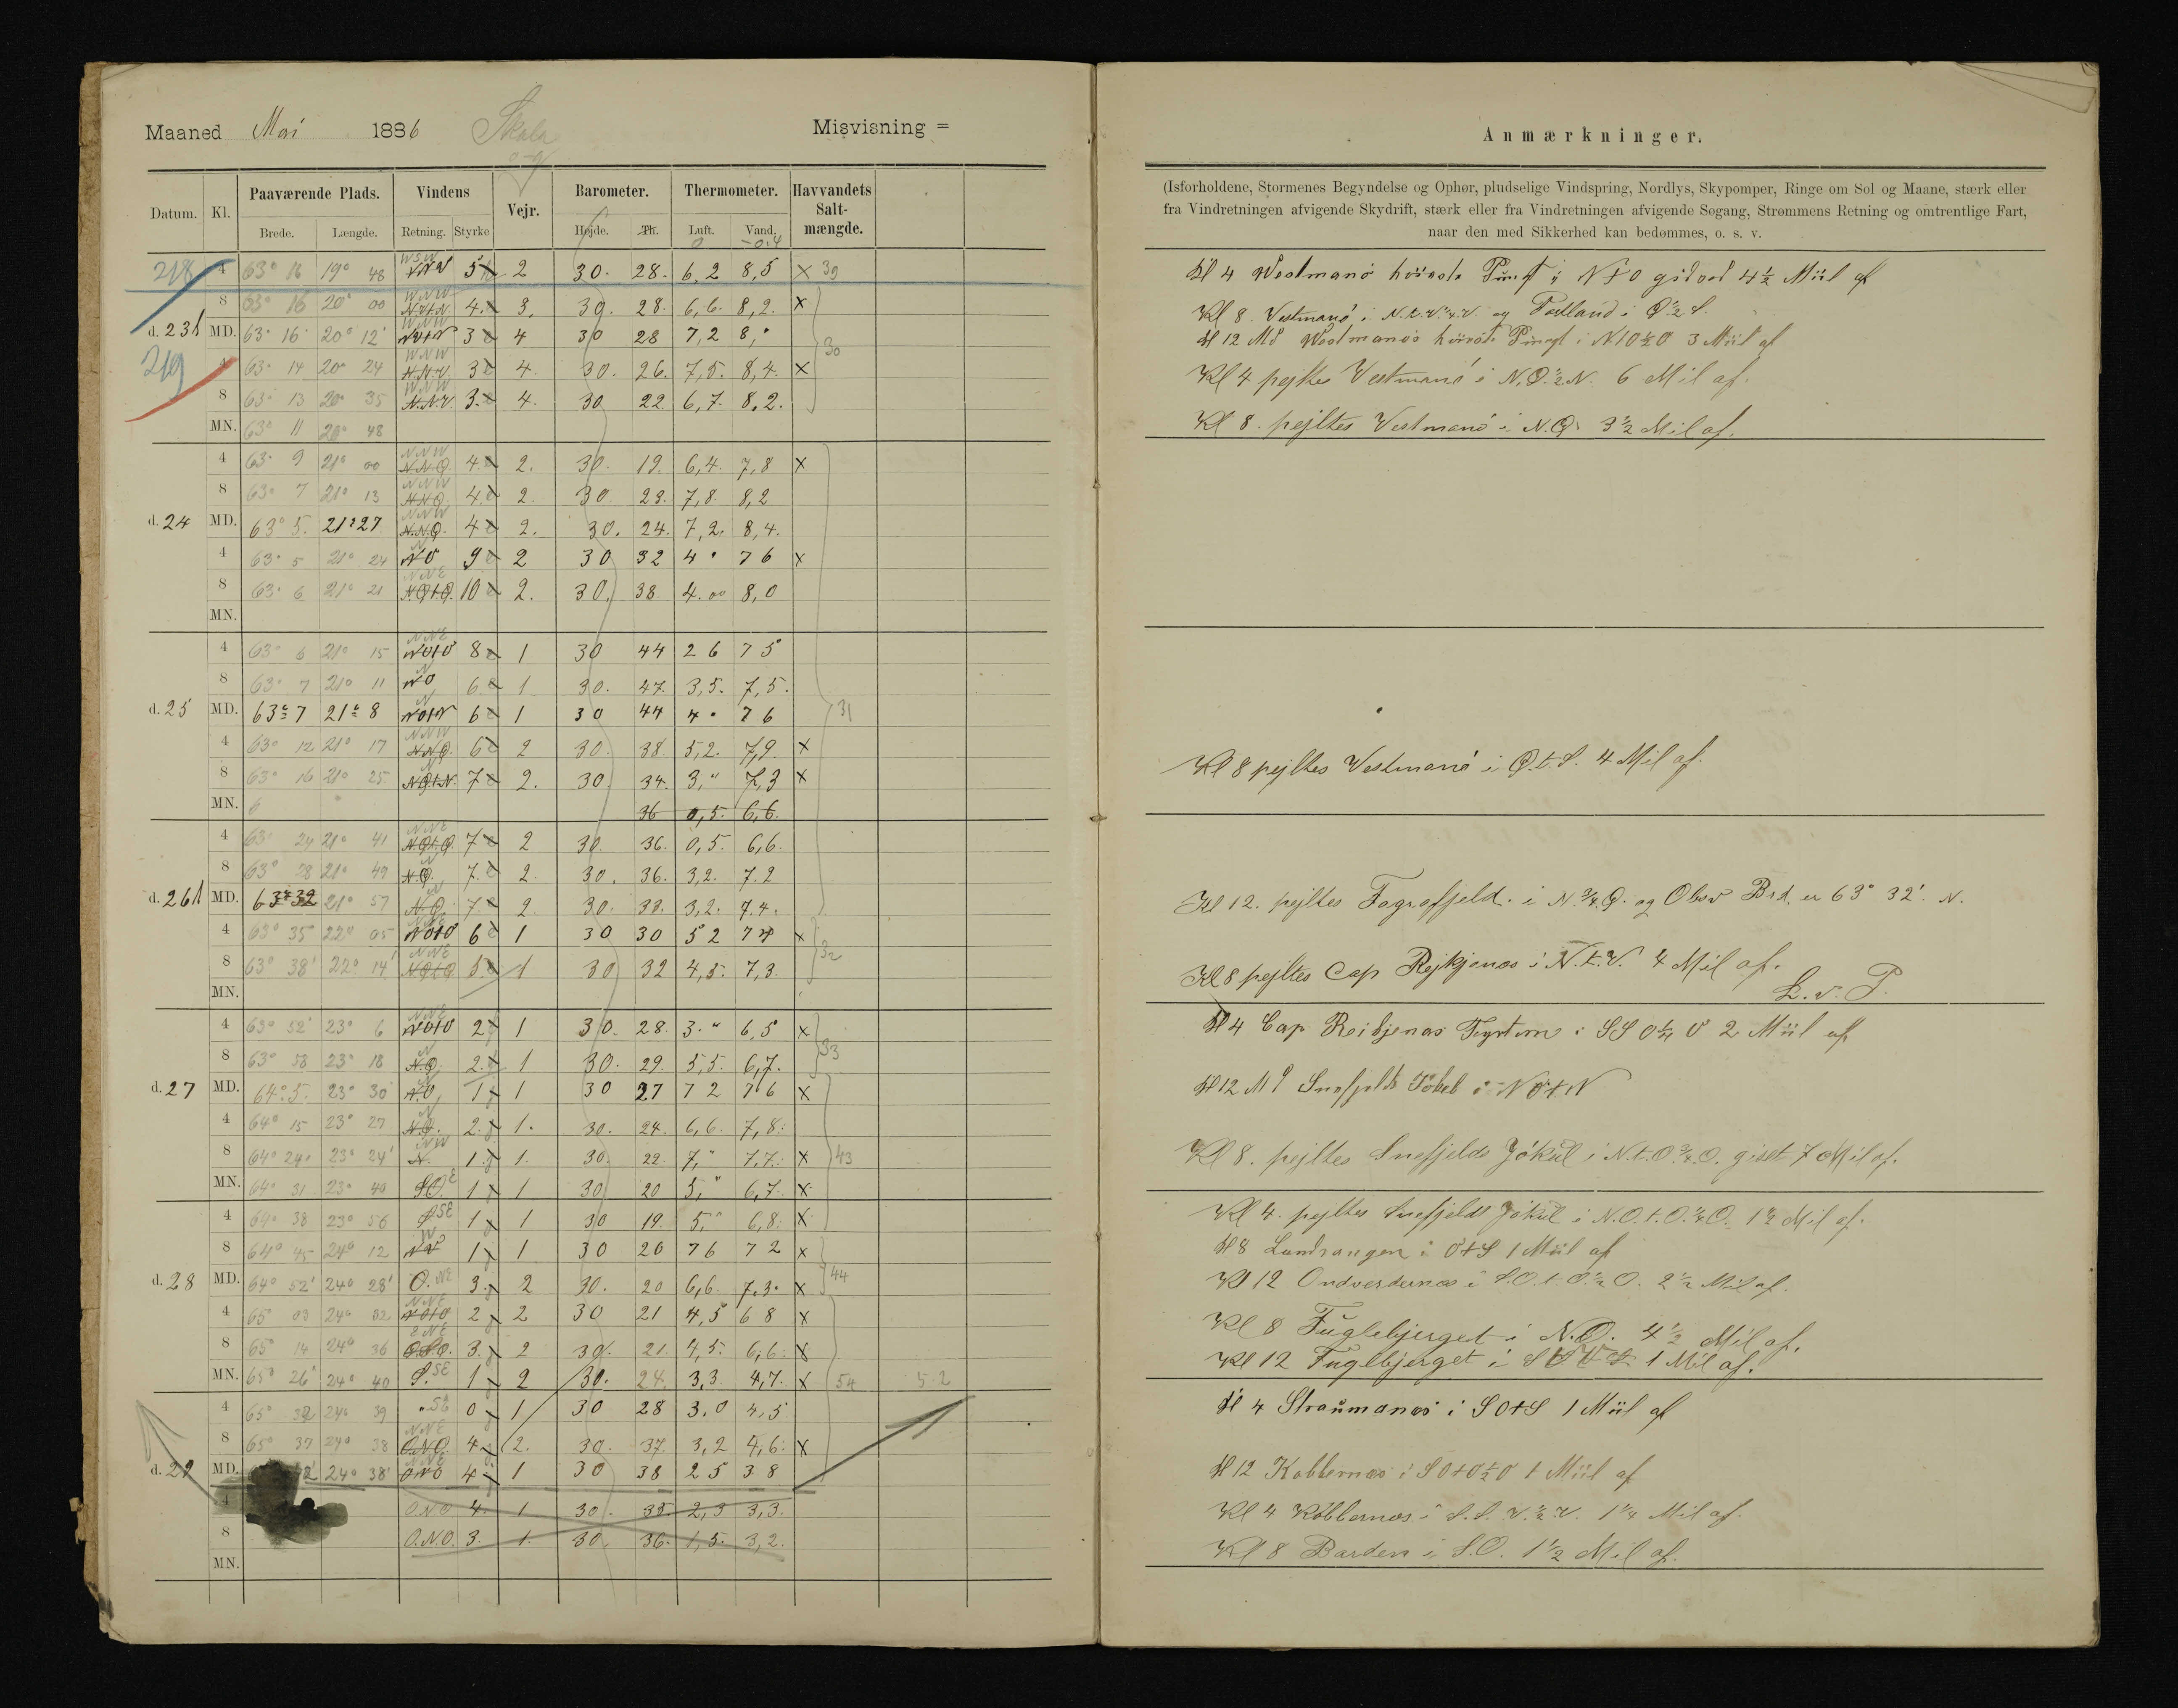 Maaned Mai 1886 Skala Misvisning =
0-9
Datum. Kl. Paaværende Plads. Vindens Vejr. Barometer. Thermometer. Havvandets Salt-mængde.
Brede. Længde. Retning. Styrke Højde. Th. Luft. Vand.
0 -0.4
218 4 63° 16 19° 48 WSW 5 2 30. 28. 6,2 8,5 × 39
8 63° 16 20° 00 WNW 4. 3. 30. 28. 6,6. 8,2. ×
d. 23 MD. 63° 16' 20° 12' WNW 3 4 30 28 7,2 8," 30
219 4 63° 14 20° 24 WNW N.N.V. 3 4. 30. 26. 7,5. 8,4. ×
8 63° 13 20° 35 WNW N.N.V. 3. 4. 30 22. 6,7. 8.2.
MN. 63° 11 20° 48
4 63° 9 21° 00 NNW N.N.O. 4. 2. 30. 19. 6,4. 7,8 ×
8 63° 7 21° 13 NNW N.N.O. 4. 2. 30 23. 7,8. 8,2
d. 24 MD. 63° 5. 21° 27 NNW N.N.O. 4 2. 30. 24. 7,2. 8,4.
4 63° 5 21° 24 N NO 9 2 30 32 4 " 7 6 ×
8 63° 6 21° 21 NNE N.O.t.O. 10 2. 30. 38 4.00 8,0
MN.
4 63° 6 21° 15 NNE NOtO 8 1 30 44 2 6 7 5
8 63° 7 21° 11 N NO 6 1 30. 47. 3,5. 7,5.
d. 25 MD. 63° 7 21° 8 N NOtN 6 1 30 44 4 " 7 6 31
4 63° 12 21° 17 NNW N.N.O. 6 2 30. 38. 5,2. 7,9. ×
8 63° 16 21° 25 N N.O.t.N. 7 2. 30. 34. 3," 7,3 ×
MN. 6 36 0,5. 6,6.
4 63° 24 21° 41 NNE N.O.t.O. 7 2 30. 36. 0,5. 6,6.
8 63° 28 21° 49 N N.O. 7. 2. 30. 36. 3,2. 7.2
d. 26 MD. 63° 32 21° 57 N N.O. 7. 2. 30. 33. 3,2. 7.4.
4 63° 35' 22° 05' NNE NOtO 6 1 30 30 5 2 7 4 ×
8 63° 38' 22° 14' NNE N.O.t.O. 5 1 30 32 4,5. 7,3. 32
MN.
4 63° 52' 23° 6 NNE NOtO 2 1 30. 28. 3." 6,5 ×
8 63° 58 23° 18 N N.O. 2. 1 30. 29. 5,5. 6,7. 33
d. 27 MD. 64° 5. 23° 30' N N.O. 1 1 30 27 7 2 7 6 ×
4 64° 15 23° 27 N N.O. 2. 1. 30. 24. 6,6. 7,8.
8 64° 24' 23° 24' NW N. 1. 1. 30. 22. 7," 7,7. × 43
MN. 64° 31 23° 40 E S.O. 1 1 30 20 5," 6,7. ×
4 64° 38 23° 56 S SE 1 1 30 19. 5," 6,8. ×
8 64° 45 24° 12 W 1 1 30 20 7 6 7 2 ×
d. 28 MD. 64° 52' 24° 28' O. NE 3. 2 30. 20 6,6. 7.3. × 44
4 65° 03 24° 32 NNE NOtO 2 2 30 21 4,5 6 8 ×
8 65° 14 24° 36 ENE O.S.O. 3. 2 30. 21. 4,5. 6,6. ×
MN. 65° 26' 24° 40 S. SE 1 2 30. 24. 3,3. 4,7. × 54 5.2
4 65° 32 24° 39 " SE 0 1 30 28 3,0 4,5
8 65° 37 24° 38 NNE O.N.O. 4. 2. 30. 37. 3,2 4,6. ×
d. 29 MD. 42' 24° 38' NNE ONO 4 1 30 38 2 5 3 8
4 O.N.O 4. 1 30. 38. 2,3 3,3.
8 O.N.O. 3. 1. 30. 36. 1,5. 3,2.
MN.
Anmærkninger.
(Isforholdene, Stormenes Begyndelse og Ophør, pludselige Vindspring, Nordlys, Skypomper, Ringe om Sol og Maane, stærk eller
fra Vindretningen afvigende Skydrift, stærk eller fra Vindretningen afvigende Søgang, Strømmens Retning og omtrentlige Fart,
naar den med Sikkerhed kan bedømmes, o. s. v.
Kl 4 Westmanö høieste Pünct i NtO gidset 4 1/2 Miil af
Kl 8. Vestmanö i N.t.V.1/4.V. og Portland i O.1/2.S.
Kl 12 Md Westmanös høieste Pünct i NtO 1/2 O 3 Miil af
Kl 4 pejltes Vestmanö i N.O.1/2.N. 6 Mil af.
Kl 8. pejltes Vestmanö i N.O. 3 1/2 Mil af.
Kl 8 pejltes Vestmanö i O.t.S. 4 Mil af.
Kl 12. pejltes Fagrafjeld. i N.3/4.O. og Obsv Brd. er 63° 32'. N.
Kl 8 pejltes Cap Rejkjanæs i N.t.V. 4 Mil af.
L. v. P.
Kl 4 Cap Reikjenæs Fyrtürn i SSO 1/4 O 2 Miil af
Kl 12 Md Snefjelds Jökel i NOtN
Kl 8. pejltes Snefjelds Jökul i N.t.O.3/4.O. gisset 7 Mil af.
Kl 4. pejltes Snefjelds Jökul i N.O.t.O.1/4.O. 1 1/2 Mil af.
Kl 8 Londrangen i OtS 1 Miil af
Kl 12 Ondverdernæs i S.O.t.O.1/2 O. 2 1/2 Mil af.
Kl 8 Fuglebjerget i N.O. 4 1/2 Mil af.
Kl 12 Fuglbjerget i 1 Mil af.
Kl 4 Straumanæs i SOtS 1 Miil af
Kl 12 Kobbernæs i SOtO 1/2 O 1 Miil af
Kl 4 Kobbernæs i S.S.V.1/2.V. 1 1/4 Mil af.
Kl 8 Barden i S.O. 1 1/2 Mil af.